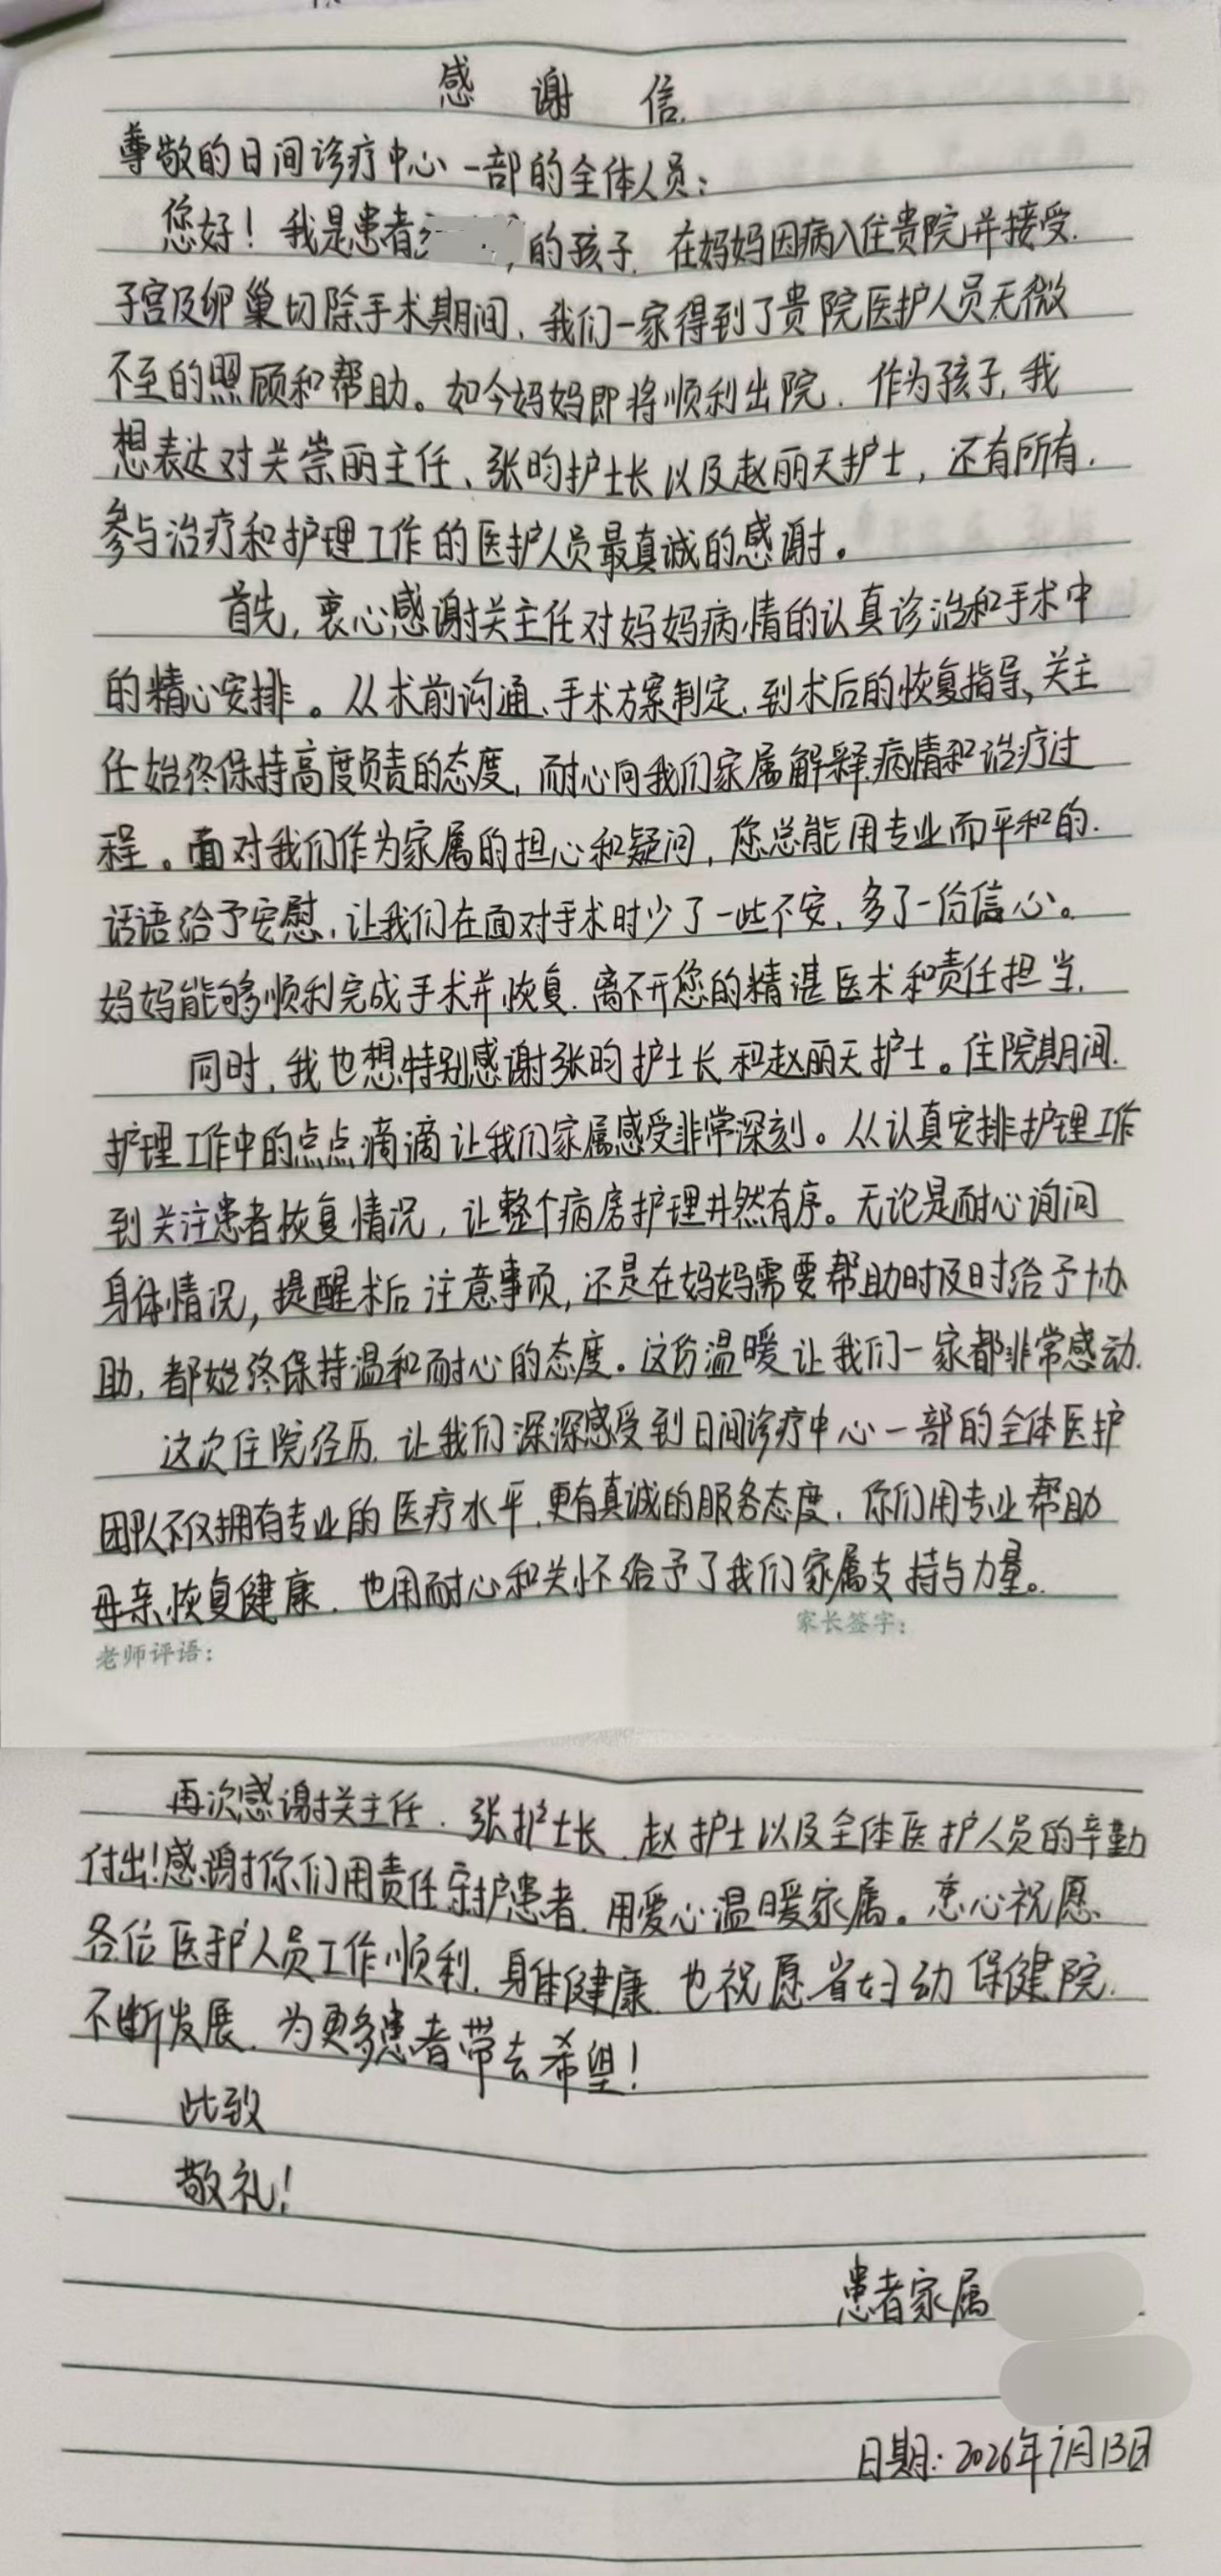 感 谢 信
尊敬的日间诊疗中心一部的全体人员：
您好！我是患者 的孩子，在妈妈因病入住贵院并接受
子宫及卵巢切除手术期间，我们一家得到了贵院医护人员无微
不至的照顾和帮助。如今妈妈即将顺利出院，作为孩子，我
想表达对关崇丽主任、张昀护士长以及赵丽天护士，还有所有
参与治疗和护理工作的医护人员最真诚的感谢。
首先，衷心感谢关主任对妈妈病情的认真诊治和手术中
的精心安排。从术前沟通、手术方案制定，到术后的恢复指导，关主
任始终保持高度负责的态度，耐心向我们家属解释病情和治疗过
程。面对我们作为家属的担心和疑问，您总能用专业而平和的
话语给予安慰，让我们在面对手术时少了一些不安，多了一份信心。
妈妈能够顺利完成手术并恢复，离不开您的精湛医术和责任担当。
同时，我也想特别感谢张昀护士长和赵丽天护士。住院期间，
护理工作中的点点滴滴让我们家属感受非常深刻。从认真安排护理工作
到关注患者恢复情况，让整个病房护理井然有序。无论是耐心询问
身体情况，提醒术后注意事项，还是在妈妈需要帮助时及时给予协
助，都始终保持温和耐心的态度。这份温暖让我们一家都非常感动。
这次住院经历，让我们深深感受到日间诊疗中心一部的全体医护
团队不仅拥有专业的医疗水平，更有真诚的服务态度，你们用专业帮助
母亲恢复健康，也用耐心和关怀给予了我们家属支持与力量。
家长签字：
老师评语：
再次感谢关主任、张护士长、赵护士以及全体医护人员的辛勤
付出！感谢你们用责任守护患者，用爱心温暖家属。衷心祝愿
各位医护人员工作顺利，身体健康，也祝愿省妇幼保健院
不断发展，为更多患者带去希望！
此致
敬礼！
患者家属
日期：2026年7月13日